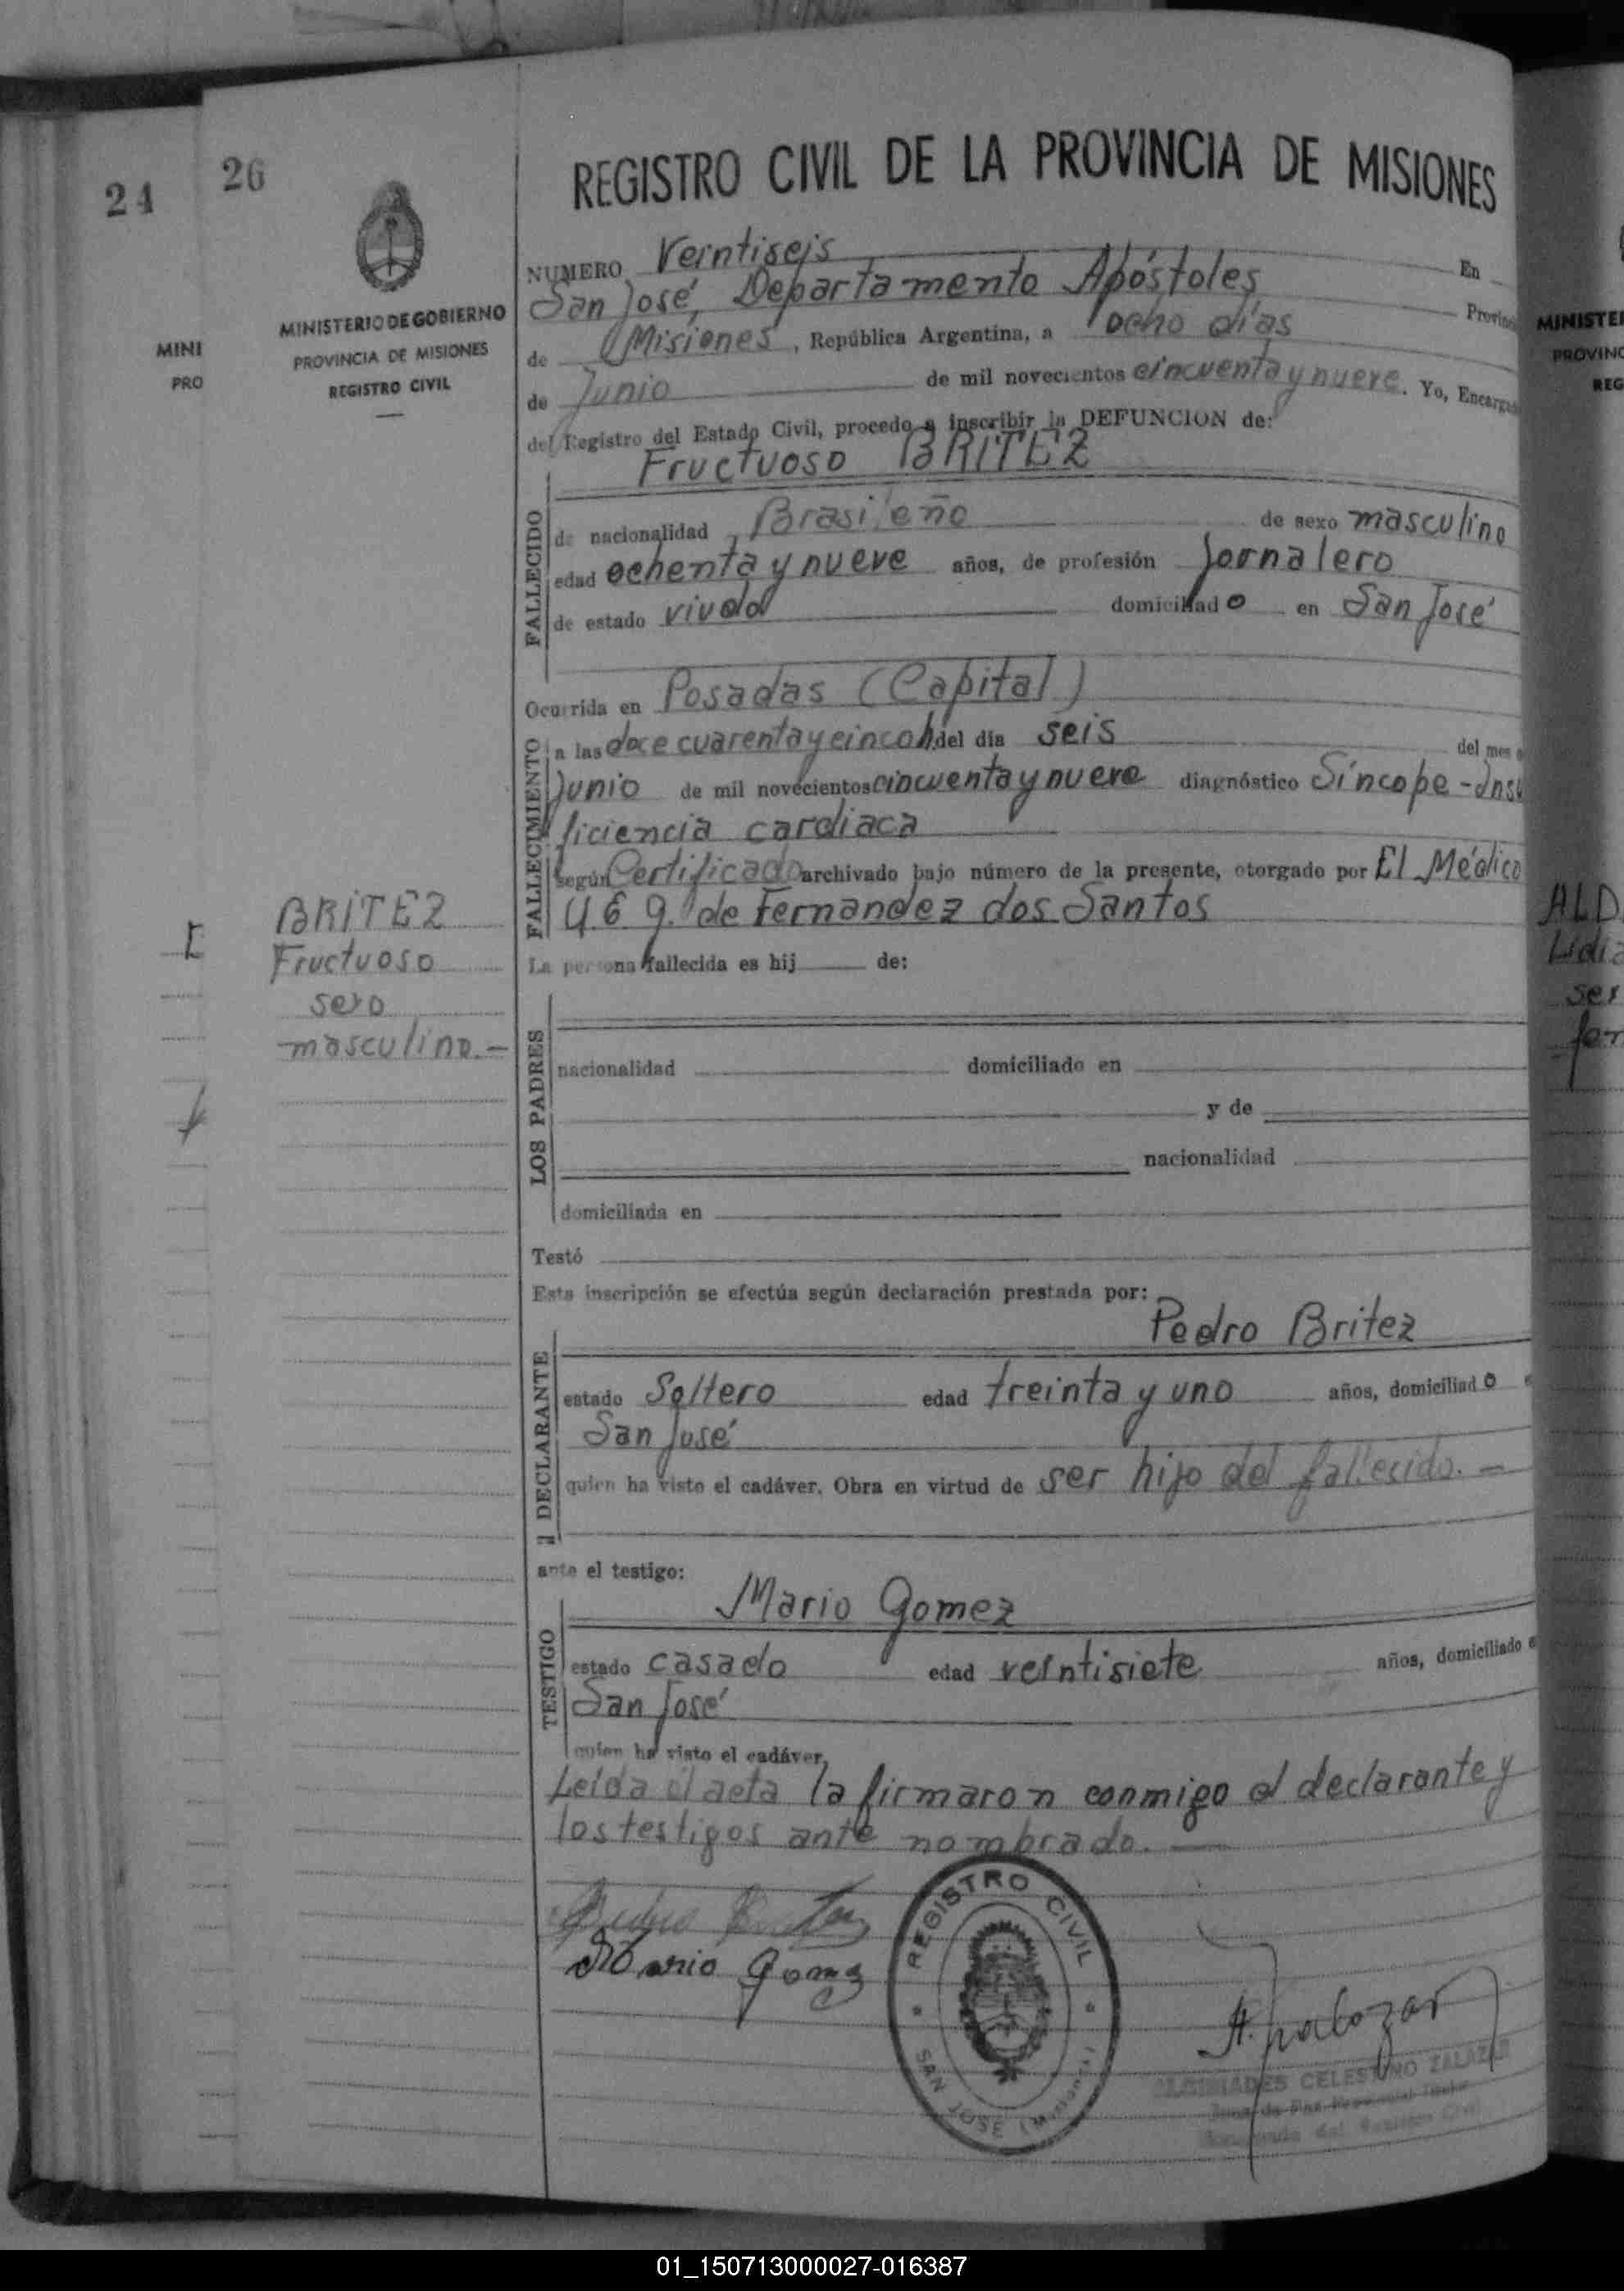 24
26
MINI
PRO
MINISTERIO DE GOBIERNO
PROVINCIA DE MISIONES
REGISTRO CIVIL
REGISTRO CIVIL DE LA PROVINCIA DE MISIONES
NUMERO Veintiseis En
San José, Departamento Apóstoles Provinc
de Misiones, República Argentina, a ocho días
de Junio de mil novecientos cincuenta y nueve. Yo, Encargad
del Registro del Estado Civil, procedo a inscribir la DEFUNCION de:
Fructuoso BRITEZ
FALLECIDO
de nacionalidad Brasileño de sexo masculino
edad ochenta y nueve años, de profesión Jornalero
de estado viudo domiciliado en San José
Ocurrida en Posadas (Capital)
FALLECIMIENTO
a las doce cuarenta y cinco h. del día seis del mes
Junio de mil novecientos cincuenta y nueve diagnóstico Síncope - Insu
ficiencia cardiaca
según Certificado archivado bajo número de la presente, otorgado por El Médico
de Fernandez dos Santos
La persona fallecida es hij de:
BRITEZ
Fructuoso
sexo
masculino.-
LOS PADRES
nacionalidad domiciliado en
y de
nacionalidad
domiciliada en
Testó
Esta inscripción se efectúa según declaración prestada por:
Pedro Britez
DECLARANTE
estado Soltero edad treinta y uno años, domiciliado
San José
quien ha visto el cadáver. Obra en virtud de ser hijo del fallecido. -
ante el testigo:
Mario Gomez
TESTIGO
estado casado edad veintisiete años, domiciliado
San José
quien ha visto el cadáver,
Leída el acta la firmaron conmigo el declarante y
los testigos ante nombrado.
Pedro Britez
Mario Gomez
REGISTRO CIVIL
SAN JOSE (Misiones)
A. Zalazar
ALCIBIADES CELESTINO ZALAZAR
MINISTE
PROVINC
REG
ALD
Lidia
sex
fem
01_150713000027-016387